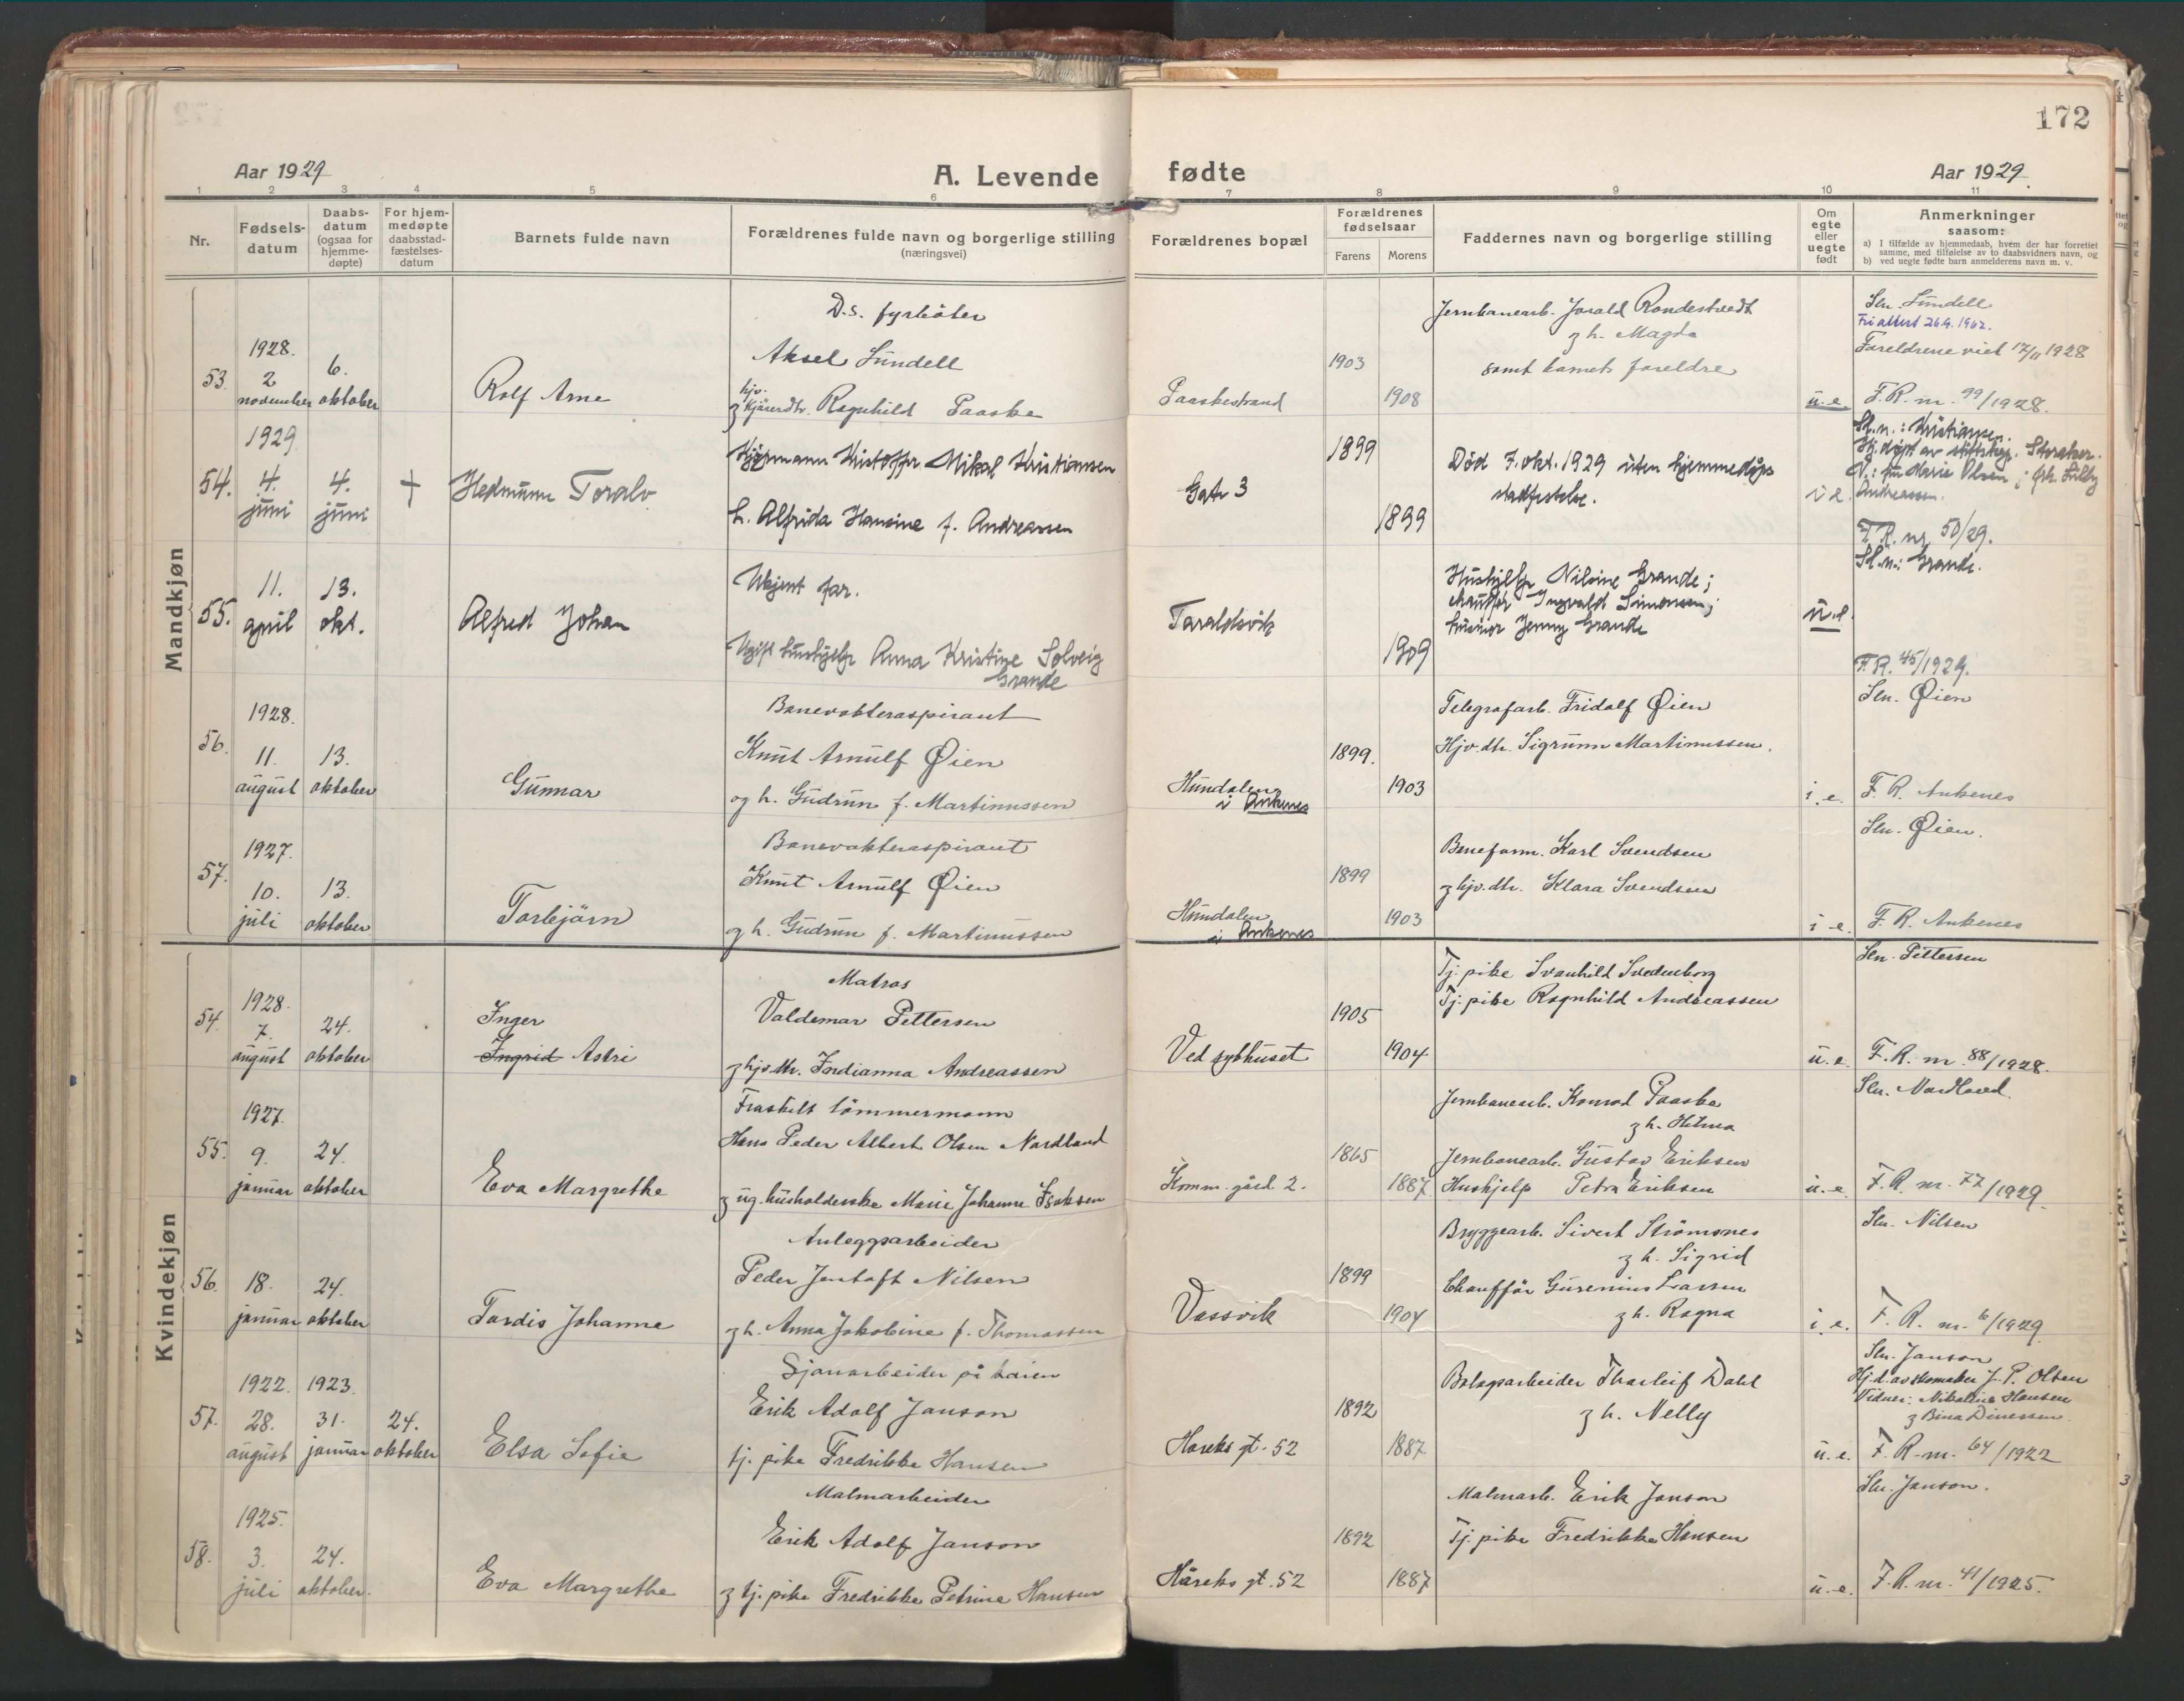 172
Aar 1929
A. Levende fødte
Aar 1929.
1 2 3 4 5 6 7 8 9 10 11
Nr.
Fødsels-datum
Daabs-datum (ogsaa for hjemme-døpte)
For hjem-medøpte daabsstad-fæstelses-datum
Barnets fulde navn
Forældrenes fulde navn og borgerlige stilling (næringsvei)
Forældrenes bopæl
Forældrenes fødselsaar
Farens Morens
Faddernes navn og borgerlige stilling
Om egte eller uegte født
Anmerkninger saasom:
a) I tilfælde av hjemmedaab, hvem der har forrettet samme, med tilføielse av to daabsvidners navn, og
b) ved uegte fødte barn anmelderens navn m. v.
Mandkjøn
53.
1928.
2 november
6. oktober
Rolf Arne
D.s. fyrbøter
Aksel Lundell
Ragnhild Paaske
Paaskestrand
1903
1908
Jernbanearb. Jorald Rondestvedt
z h. Magda
samt barnets foreldre
u.e.
Sln. Lundell
Foreldrene viet 17/11 1928
F.R. nr. 99/1928.
54.
1929.
4. juni
4. juni
+
Hedmunn Toralv.
Kristoffer Mikal Kristiansen
h. Alfrida Hansine f. Andreassen
Gate 3
1899
1899
Død 7. okt. 1929 uten hjemmedåps
stadfestelse.
i e.
Sl.n.: Kristiansen.
Hj.døpt av Storaker.
V.: fru Marie Olsen; frk. Lilly
Andreassen.
F.R. nr 50/29.
55.
11. april
13. okt.
Alfred Johan
Ukjent far.
Ugift hushjelp Anna Kristine Solveig
Grande
Taraldsvik
1909
Hushjelp Nilsine Grande;
chauffør Ingvald Simonsen;
husmor Jenny Grande
u.e.
Sl.n: Grande.
F.R. 45/1929.
56.
1928.
11. august
13. oktober
Gunnar
Banevokteraspirant
Knut Arnulf Øien
og h. Gudrun f. Martinussen
Hundalen
i Ankenes
1899.
1903
Telegrafarb. Fridolf Øien
Hjv. dtr. Sigrunn Martinussen.
i.e.
Sln. Øien
F.R. Ankenes
57.
1927.
10. juli
13. oktober
Torbjørn
Banevokteraspirant
Knut Arnulf Øien
og h. Gudrun f. Martinussen
Hundalen
i Ankenes
1899
1903
Baneform. Karl Svendsen
z hjv. dtr. Klara Svendsen
i e.
Sln. Øien.
F.R. Ankenes
Kvindekjøn
54.
1928.
7. august
24. oktober
Inger
Ingrid Astri
Matros
Valdemar Pettersen
z hjv. dtr. Indianna Andreassen
Ved sykhuset
1905
1904
Tj. pike Svanhild Svedenborg
Tj. pike Ragnhild Andreassen
u.e.
Sln. Pettersen
F.R. nr 88/1928.
55.
1927.
9. januar
24. oktober
Eva Margrethe
Fraskilt tømmermann
Hans Peder Albert Olsen Nordland
z ug. husholderske Marie Johanne Isaksen
Komm. gård 2.
1865
1887
Jernbanearb. Konrad Paaske
z h. Hilma
Jernbanearb. Gustav Eriksen
Hushjelp Petra Eriksen
u.e.
Sln. Nordland.
F.R. nr. 77/1929.
56.
18. januar
24. oktober
Tordis Johanne
Anleggsarbeider
Peder Jentoft Nilsen
z h. Anna Jakobine f. Thomassen
Vassvik
1899
1904
Bryggearb. Sivert Strømsnes
z h. Sigrid
Chauffør Gurenius Larsen
z h. Ragna
i.e.
Sln. Nilsen
F.R. nr. 6/1929.
57.
1922. 1923.
28. august
31. januar
24. oktober
Elsa Sofie
Sjauarbeider på kaien
Erik Adolf Janson
tj. pike Fredrikke Hansen
Hareks gt. 52
1892
1887
Bolagsarbeider Thorleif Dahl
z h. Nelly
u.e.
Sln. Janson
Hj.d. av skomaker J. P. Olsen
Vidner: Nikoline Hansen
z Bina Dinessen.
F.R. nr. 64/1922
58.
1925.
3. juli
24. oktober.
Eva Margrethe
Malmarbeider
Erik Adolf Janson
z tj. pike Fredrikke Petrine Hansen
Håreks gt. 52
1892
1887
Malmarb. Erik Janson
Tj. pike Fredrikke Hansen
u.e.
Sln. Janson.
F.R. nr. 41/1925.